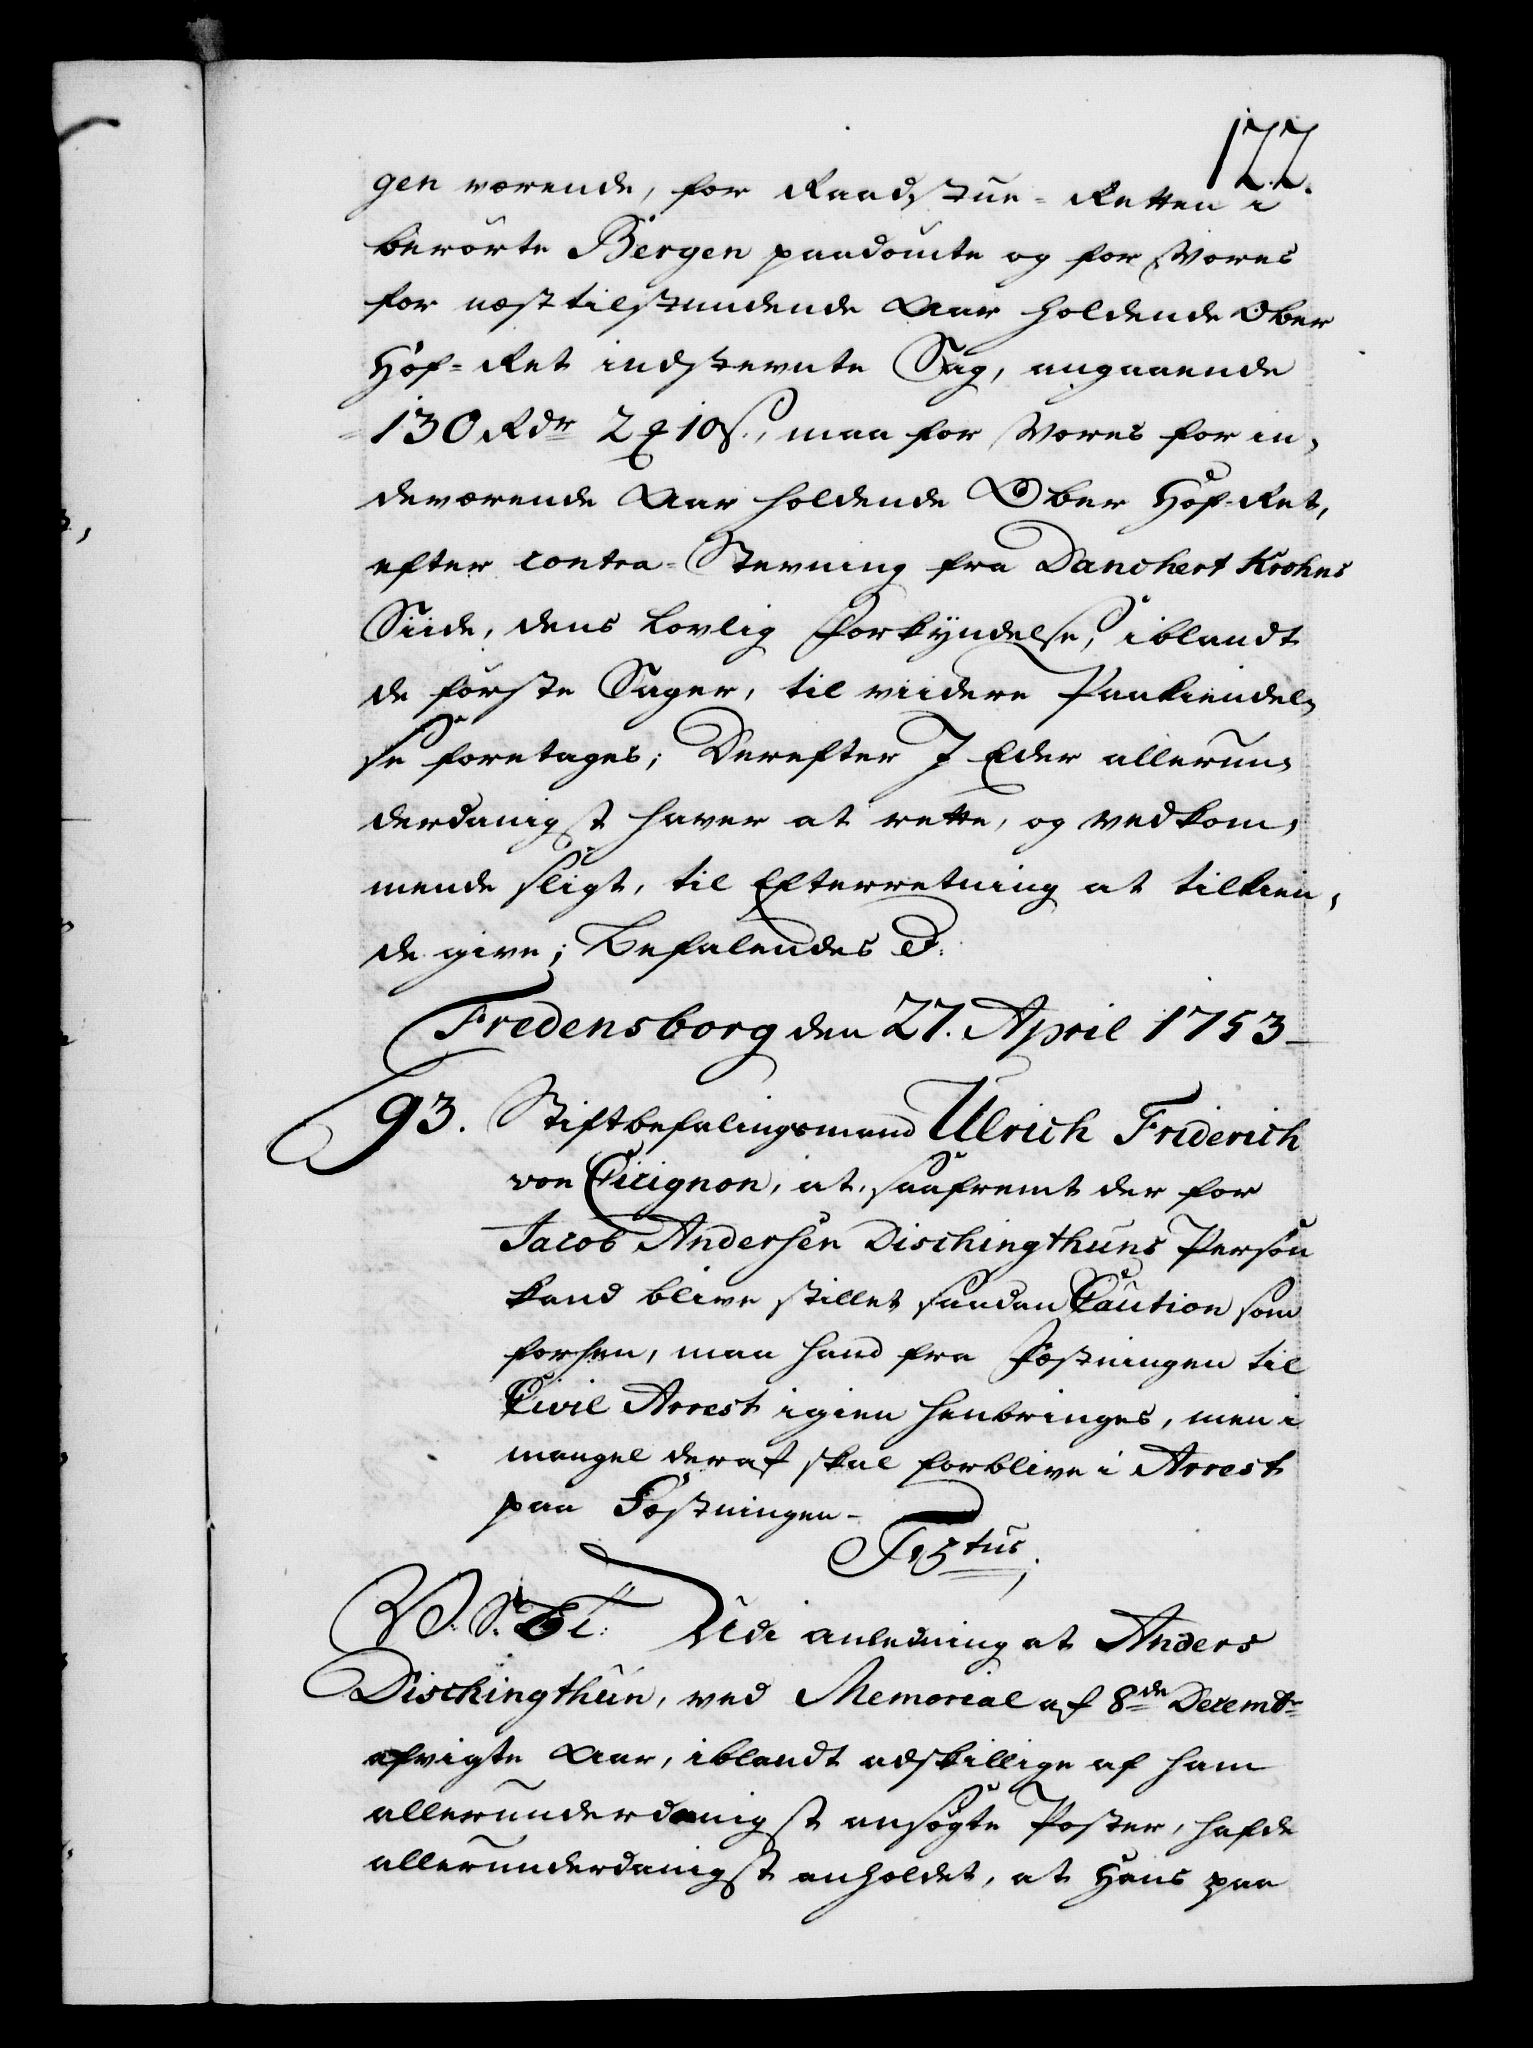 177.
gen værende, for Raadstue-Retten i
berørte Bergen paadømte og for Vores
for næsttilstundende Aar holdende Ober
Hof-Ret indstevnte Sag, angaaende
130 Rdr 2 10 s., maa for Vores for in-
deværende Aar holdende Ober Hof-Ret,
efter contra-Stevning fra Danchert Krohns
Siide, dens Lovlig Forkyndelse, iblandt
de første Sager, til viidere Paakiendel-
se foretages; Derefter I Eder allerun-
derdanigst haver at rette, og vedkom-
mende sligt, til Efterretning at tilkien-
de give; Befalendes
Fredensborg den 27. April 1753
93. Stiftbefalingsmand Ulrich Friderich
von Cicignon, at, saafremt der for
Jacob Andersen Dischingthuns Person
kand blive stillet saadan Caution som
forsvar, maa hand fra Fæstningen til
Civil Arrest igien henbringes, men i
mangel deraf skal forblive i Arrest
paa Fæstningen-
F 5tus
Udi anledning at Anders
Dischingthun, ved Memorial af 8de Decembr
afvigte Aar, iblandt adskillige af ham
allerunderdanigst ansøgte Poster, hafde
allerunderdanigst anholdet, at Hans paa